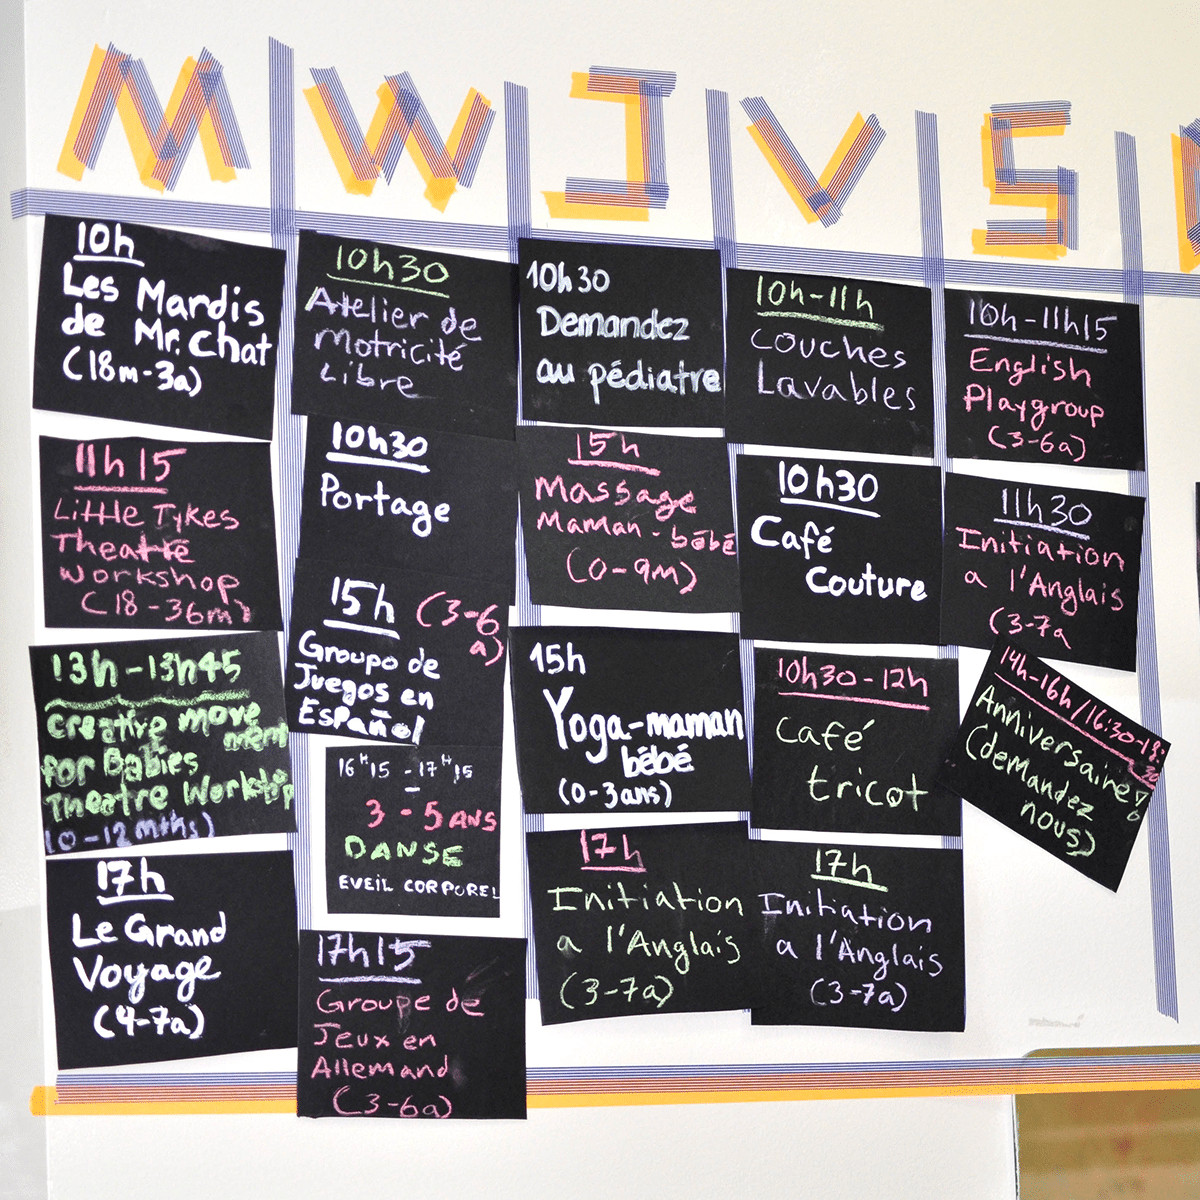 M W J V S
10h
Les Mardis
de Mr. Chat
(18m-3a)
11h15
Little Tykes
Theatre
Workshop
(18-36m)
13h-13h45
Creative move
ment
for Babies
Theatre Workshop
(0-12mths)
17h
Le Grand
Voyage
(4-7a)
10h30
Atelier de
Motricité
Libre
10h30
Portage
15h (3-6
a)
Groupo de
Juegos en
Español
16H15 - 17H15
3 - 5 ANS
DANSE
EVEIL CORPOREL
17h15
Groupe de
Jeux en
Allemand
(3-6a)
10h30
Demandez
au pédiatre
15h
Massage
Maman-bébé
(0-9m)
15h
Yoga-maman
bébé
(0-3ans)
17h
Initiation
a l'Anglais
(3-7a)
10h-11h
Couches
Lavables
10h30
Café
Couture
10h30-12h
Café
tricot
17h
Initiation
a l'Anglais
(3-7a)
10h-11h15
English
Playgroup
(3-6a)
11h30
Initiation
a l'Anglais
(3-7a
14h-16h/16:30-18:
30
Anniversaire!
(demandez
nous)